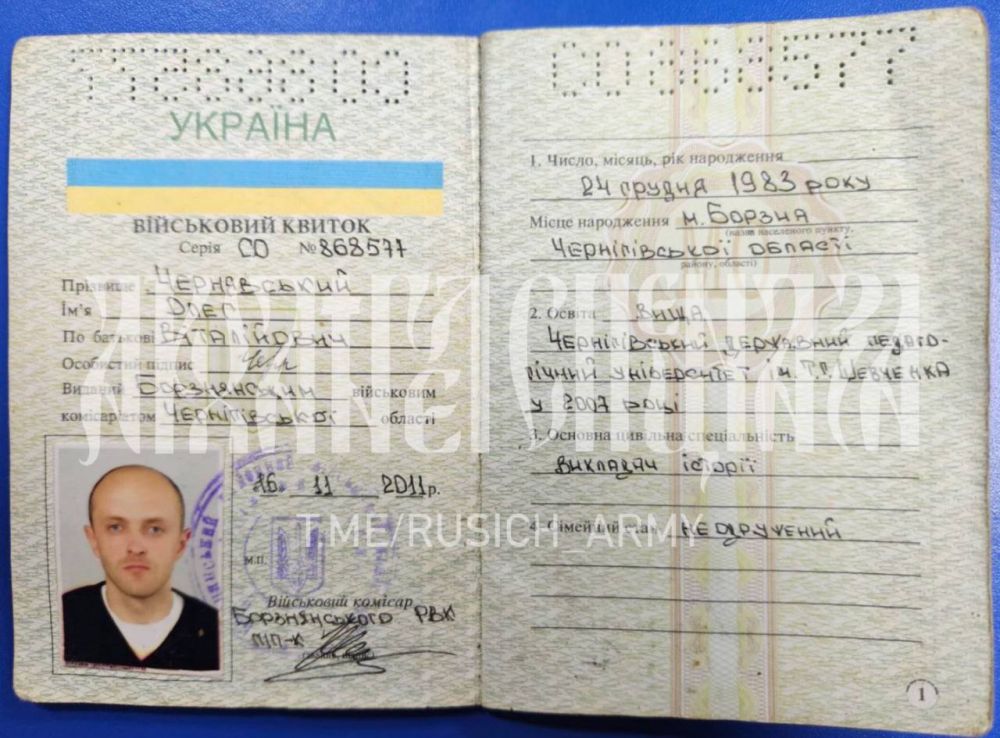 СО 868577
УКРАЇНА
ВІЙСЬКОВИЙ КВИТОК
Серія СО № 868577
Прізвище Чернявський
Ім'я Олег
По батькові Віталійович
Особистий підпис
Виданий Борзнянським військовим
комісаріатом Чернігівської області
16. 11 2011 р.
М.П.
Військовий комісар
Борзнянського РВК
п/п-к
1. Число, місяць, рік народження
24 грудня 1983 року
Місце народження м. Борзна
(назва населеного пункту,
Чернігівської області
району, області)
2. Освіта Вища
Чернігівський державний педаго-
гічний університет і м. Т.Г. Шевченка
у 2007 році
3. Основна цивільна спеціальність
викладач історії
4. Сімейний стан неодружений
1
T.ME/RUSICH_ARMY